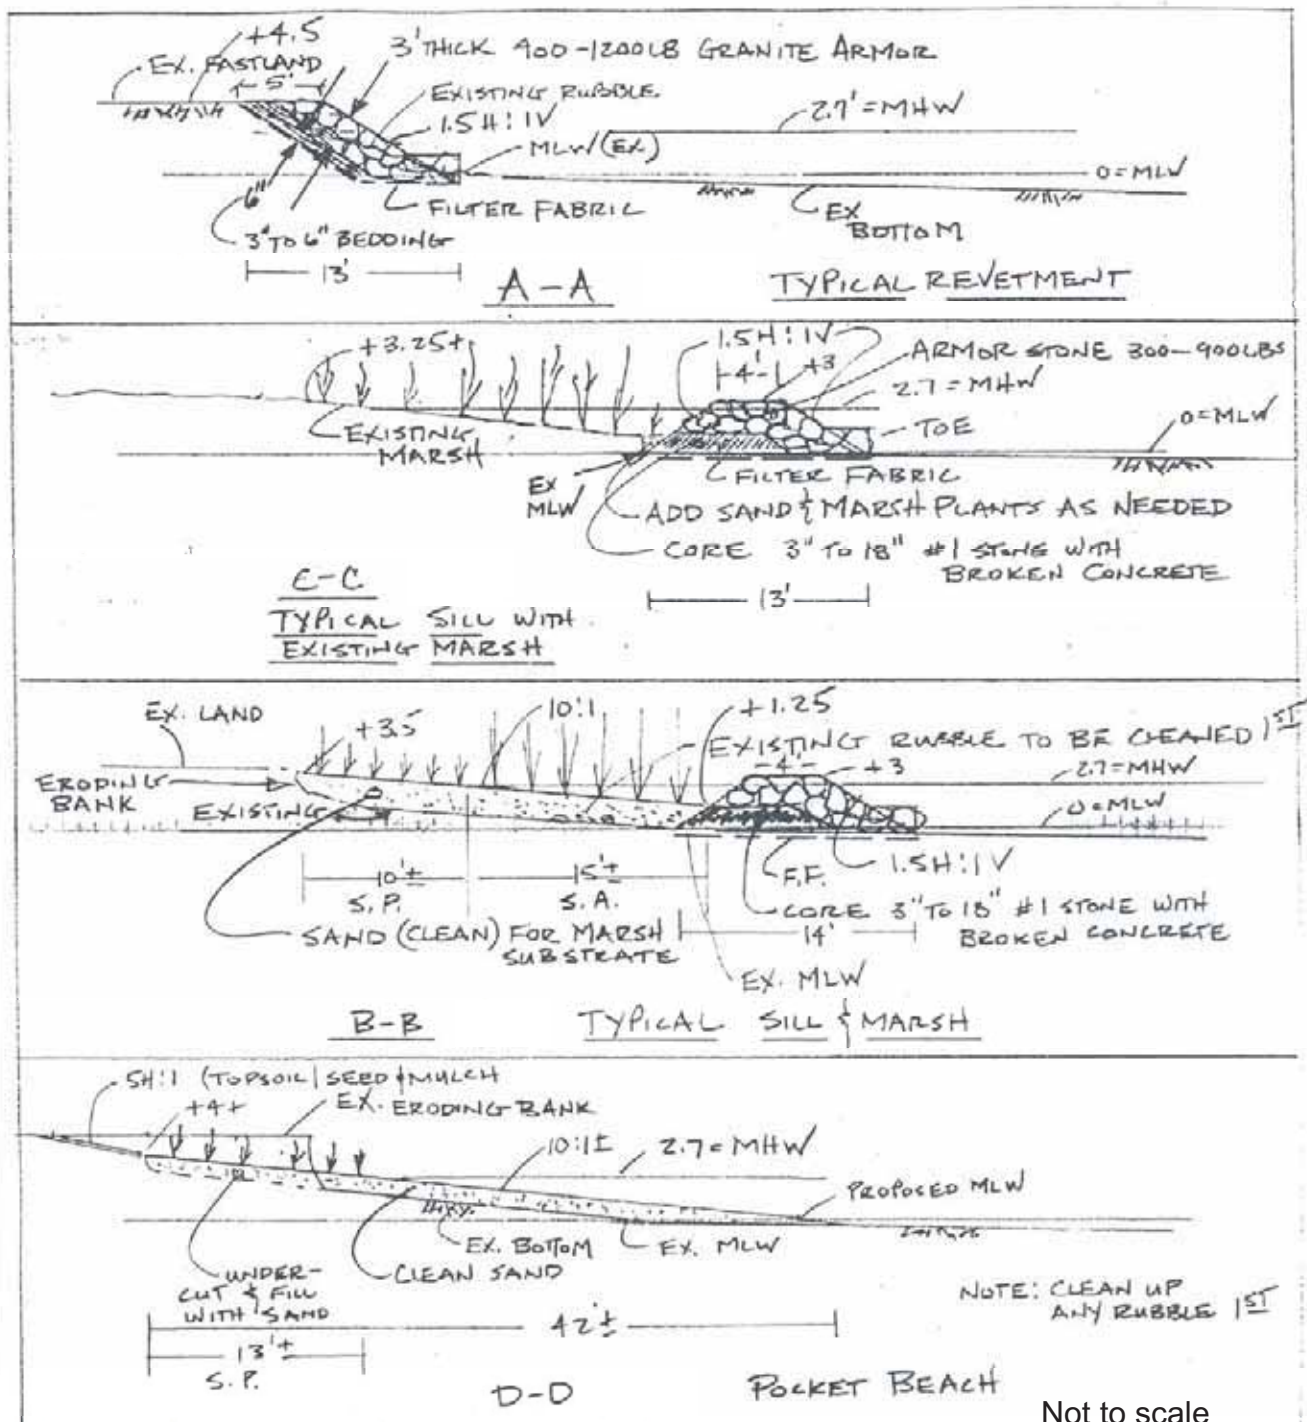 +4.5
EX. FASTLAND
5'
3' THICK 400-1200LB GRANITE ARMOR
EXISTING RUBBLE
1.5H:1V
MLW (EX)
2.7' = MHW
0 = MLW
6"
FILTER FABRIC
EX
BOTTOM
3" TO 6" BEDDING
13'
A-A
TYPICAL REVETMENT
+3.25±
1.5H:1V
4'
+3
ARMOR STONE 300-900LBS
2.7 = MHW
0 = MLW
TOE
EXISTING
MARSH
EX
MLW
FILTER FABRIC
ADD SAND & MARSH PLANTS AS NEEDED
CORE 3" TO 18" #1 STONE WITH
BROKEN CONCRETE
13'
C-C
TYPICAL SILL WITH
EXISTING MARSH
EX. LAND
+3.5
10:1
+1.25
EXISTING RUBBLE TO BE CLEANED 1ST
4'
+3
2.7 = MHW
ERODING
BANK
EXISTING
0 = MLW
10'±
S.P.
15'±
S.A.
F.F.
1.5H:1V
SAND (CLEAN) FOR MARSH
SUBSTRATE
CORE 3" TO 18" #1 STONE WITH
BROKEN CONCRETE
14'
EX. MLW
B-B
TYPICAL SILL & MARSH
5H:1 (TOPSOIL/SEED & MULCH
+4±
EX. ERODING BANK
10:1±
2.7 = MHW
PROPOSED MLW
EX. BOTTOM
EX. MLW
CLEAN SAND
UNDER-
CUT & FILL
WITH SAND
NOTE: CLEAN UP
ANY RUBBLE 1ST
42'±
13'±
S.P.
D-D
POCKET BEACH
Not to scale